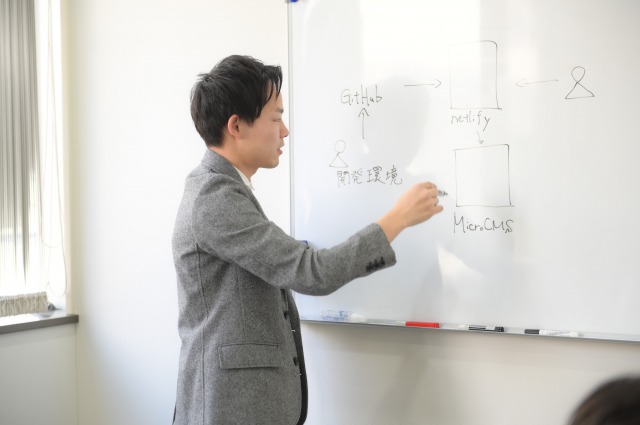 GitHub
netlify
開発環境
MicroCMS